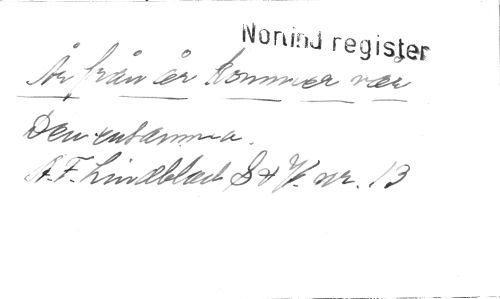 Nonind register
År från år kommer vår
Den ensamma.
A.F. Lindblad S & V. nr. 13